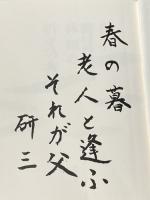 春の暮
老人と逢ふ
それが父
研三